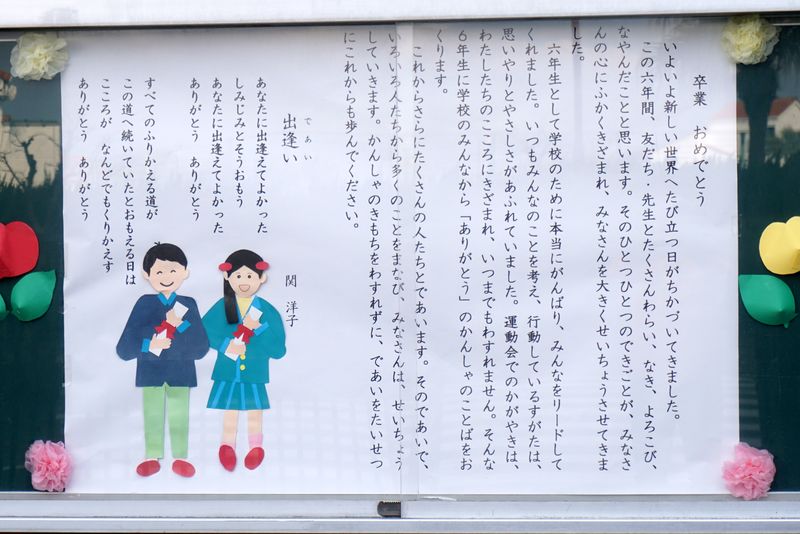 卒業　おめでとう
いよいよ新しい世界へたび立つ日がちかづいてきました。
この六年間、友だち・先生とたくさんわらい、なき、よろこび、
なやんだことと思います。そのひとつひとつのできごとが、みなさ
んの心にふかくきざまれ、みなさんを大きくせいちょうさせてきま
した。
六年生として学校のために本当にがんばり、みんなをリードして
くれました。いつもみんなのことを考え、行動しているすがたは、
思いやりとやさしさがあふれていました。運動会でのかがやきは、
わたしたちのこころにきざまれ、いつまでもわすれません。そんな
６年生に学校のみんなから「ありがとう」のかんしゃのことばをお
くります。
これからさらにたくさんの人たちとであいます。そのであいで、
いろいろ人たちから多くのことをまなび、みなさんは、せいちょう
していきます。かんしゃのきもちをわすれずに、であいをたいせつ
にこれからも歩んでください。
出逢い
であい
関　洋子
あなたに出逢えてよかった
しみじみとそうおもう
あなたに出逢えてよかった
ありがとう　ありがとう
すべてのふりかえる道が
この道へ続いていたとおもえる日は
こころが　なんどでもくりかえす
ありがとう　ありがとう